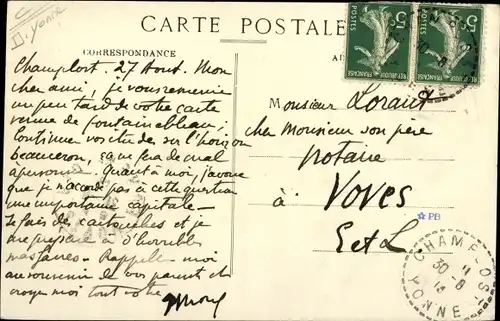 D. Yonne
CARTE POSTALE
CORRESPONDANCE
5
POSTES
REPUBLIQUE FRANÇAISE
5
POSTES
REPUBLIQUE FRANÇAISE
Champlost. 27 Aout. Mon
cher ami, je vous remercie
un peu tard de votre carte
venue de fontainebleau;
Continue vos études sur l'horizon
beauceron, ça ne fera de mal
à personne. Quant à moi, j'avoue
que je n'accorde pas à cette question
une importante capitale.
Je fais de cartouches et je
me prépare à d'horribles
massacres. Rappelle moi
au souvenir de vos parents et
croyez moi tout votre
Monsieur Lorant
chez Monsieur son père
notaire
à Voves
E et L
PB
CHAMPLOST
30-8
YONNE